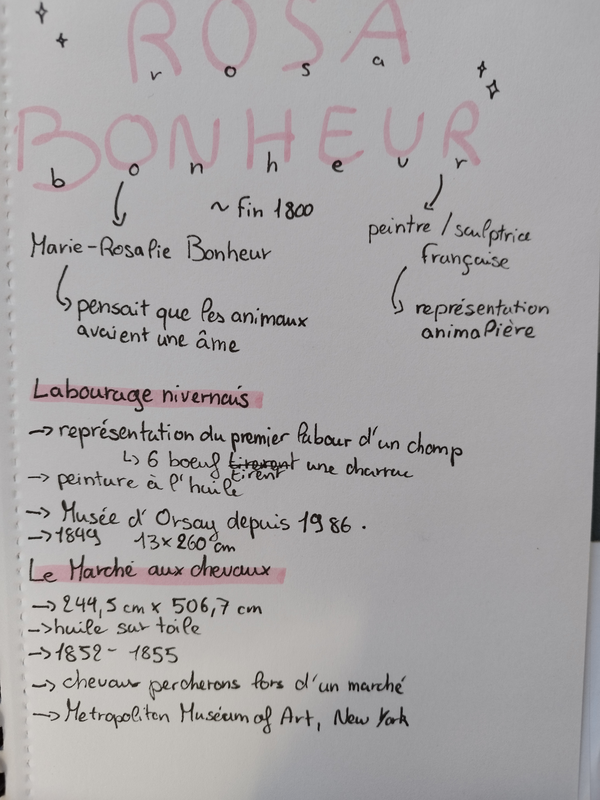 ROSA
rosa
BONHEUR
bonheur
~ fin 1800
Marie-Rosalie Bonheur
pensait que les animaux
avaient une âme
peintre / sculptrice
française
représentation
animalière
Labourage nivernais
→ représentation du premier labour d'un champ
↳ 6 boeuf tirent une charrue
→ peinture à l'huile
→ Musée d'Orsay depuis 1986.
→ 1849 13 x 260 cm
Le Marché aux chevaux
→ 244,5 cm x 506,7 cm
→ huile sur toile
→ 1852 - 1855
→ chevaux percherons lors d'un marché
→ Metropoliton Muséum of Art, New York